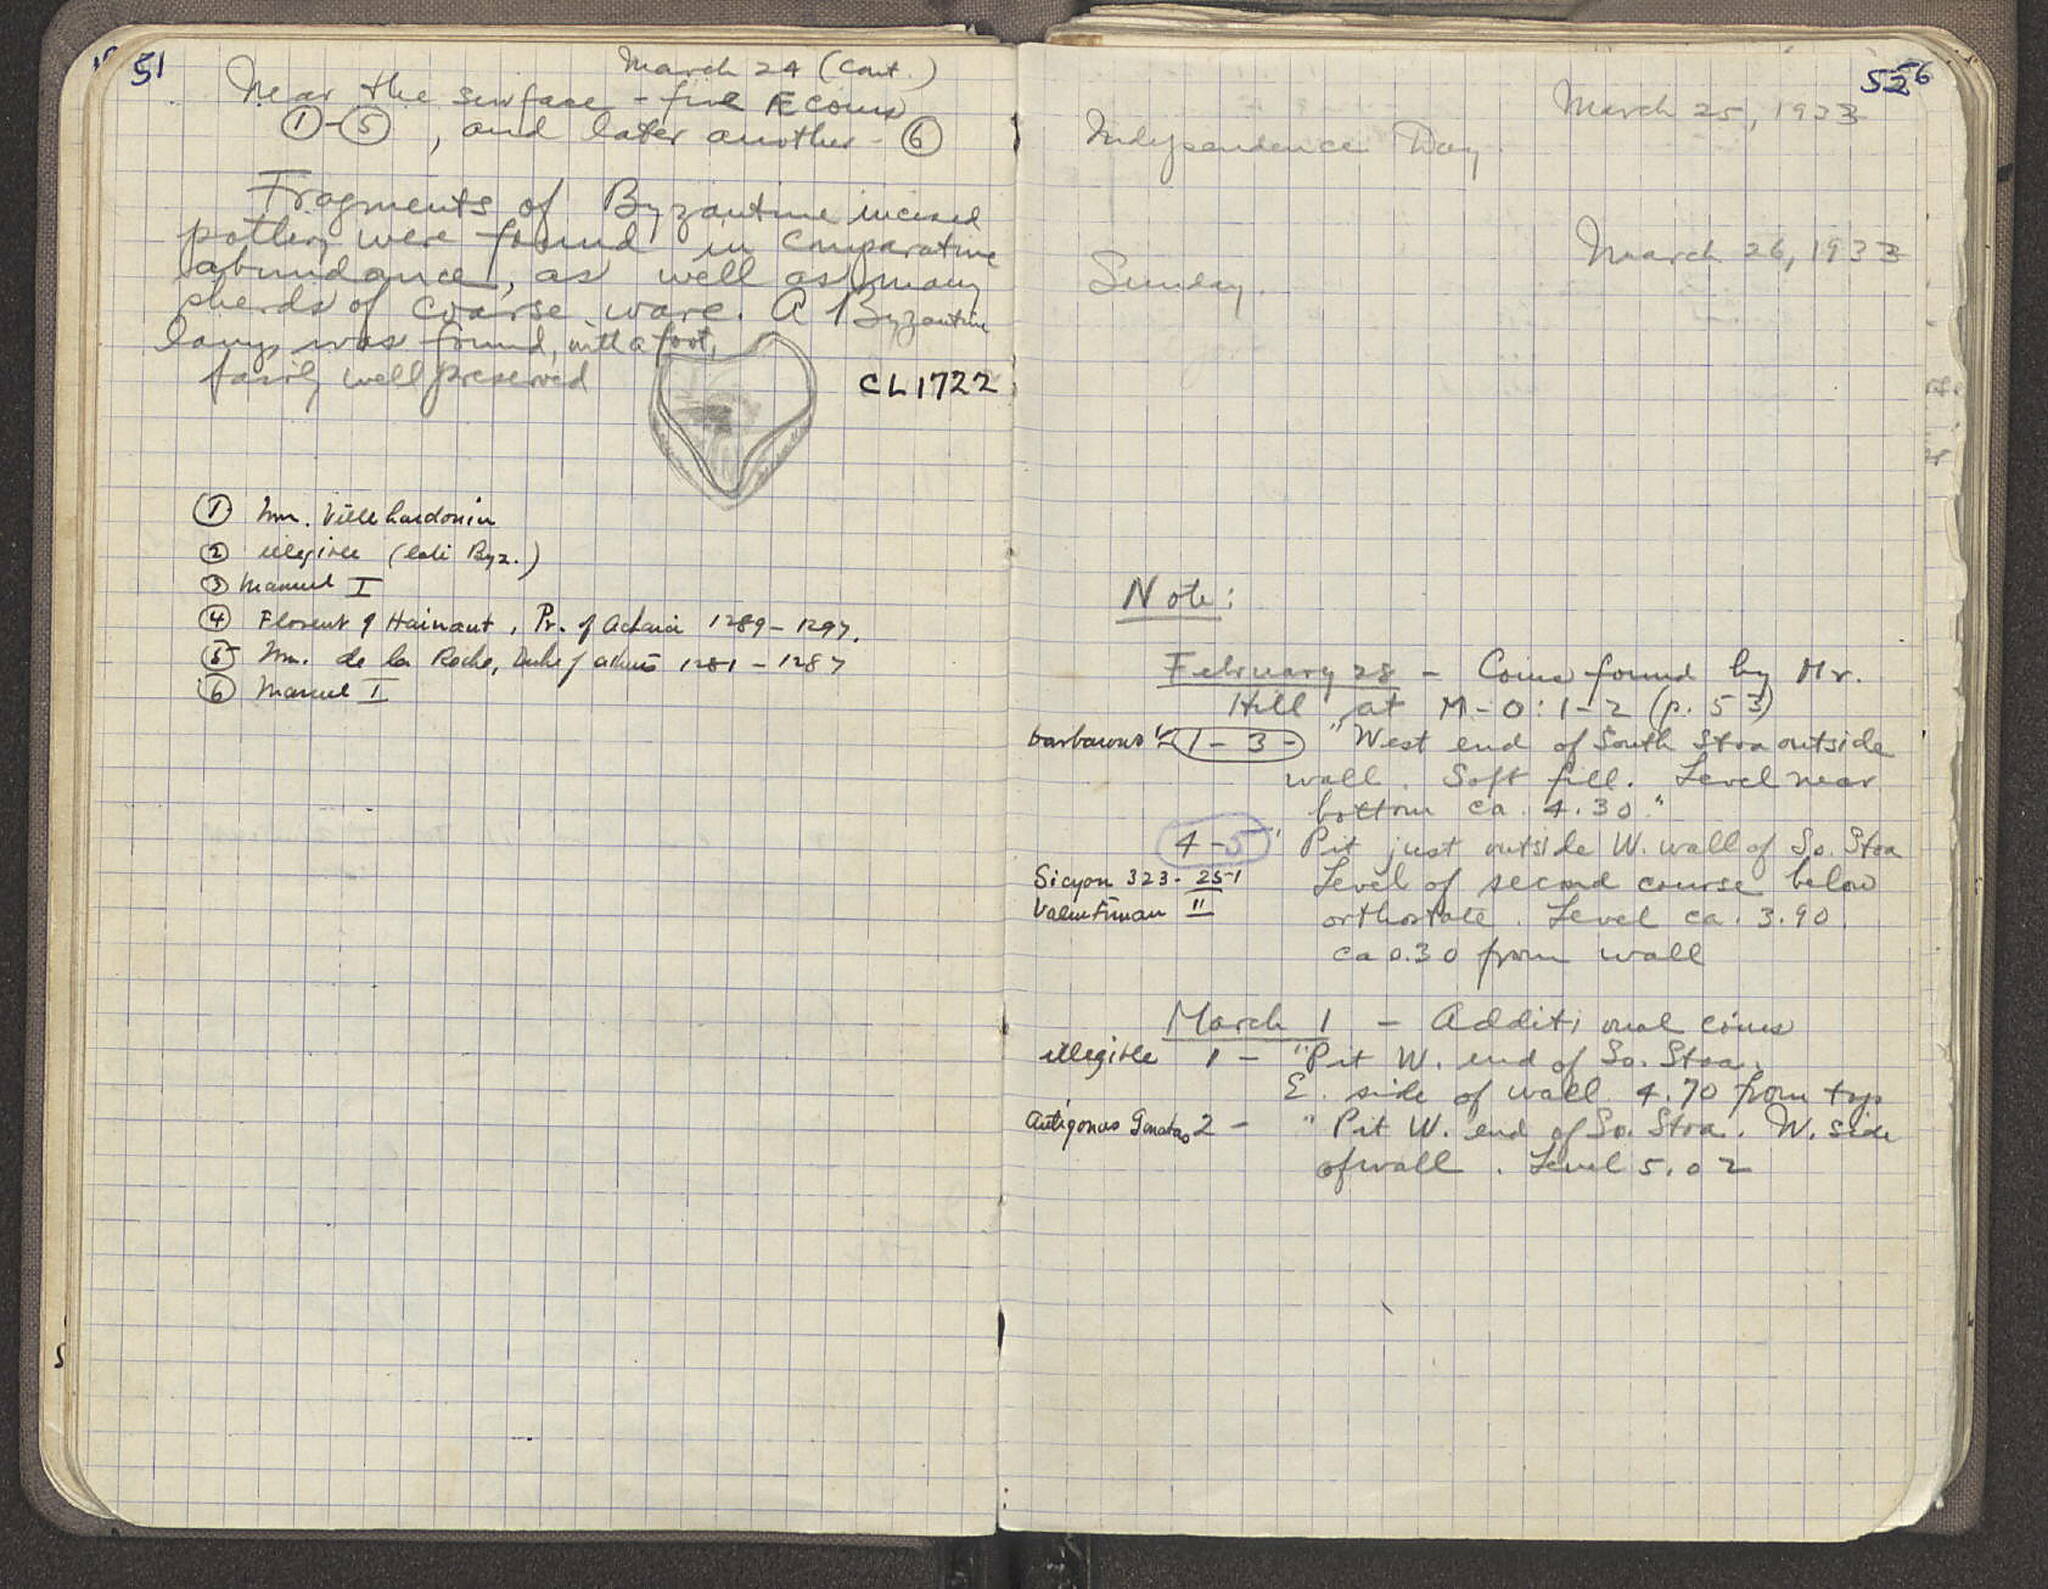 51
March 24 (Cont.)
Near the surface - five Æ coins
①-⑤, and later another - ⑥
Fragments of Byzantine incised
pottery were found in comparative
abundance, as well as many
sherds of coarse ware. A Byzantine
lamp was found, with a foot,
fairly well preserved
CL1722
① Wm. Villehardouin
② illegible (late Byz.)
③ Manuel I
④ Florent of Hainaut, Pr. of Achaia 1289-1297.
⑤ Wm. de la Roche, Duke of Athens 1281-1287
⑥ Manuel I
52
56
March 25, 1933
Independence Day
March 26, 1933
Sunday.
Note:
February 28 - Coins found by Mr.
Hill at M-O:1-2 (p. 53)
barbarous 1-3 - "West end of South Stoa outside
wall. Soft fill. Level near
bottom ca. 4.30."
4-5 " Pit just outside W. wall of So. Stoa
Sicyon 323-251 Level of second course below
Valentinian II orthostate. Level ca. 3.90.
ca 0.30 from wall
March 1 - Additional coins
illegible 1 - "Pit W. end of So. Stoa.
E. side of wall. 4.70 from top
Antigonus Gonatas 2 - " Pit W. end of So. Stoa. W. side
of wall. Level 5.02